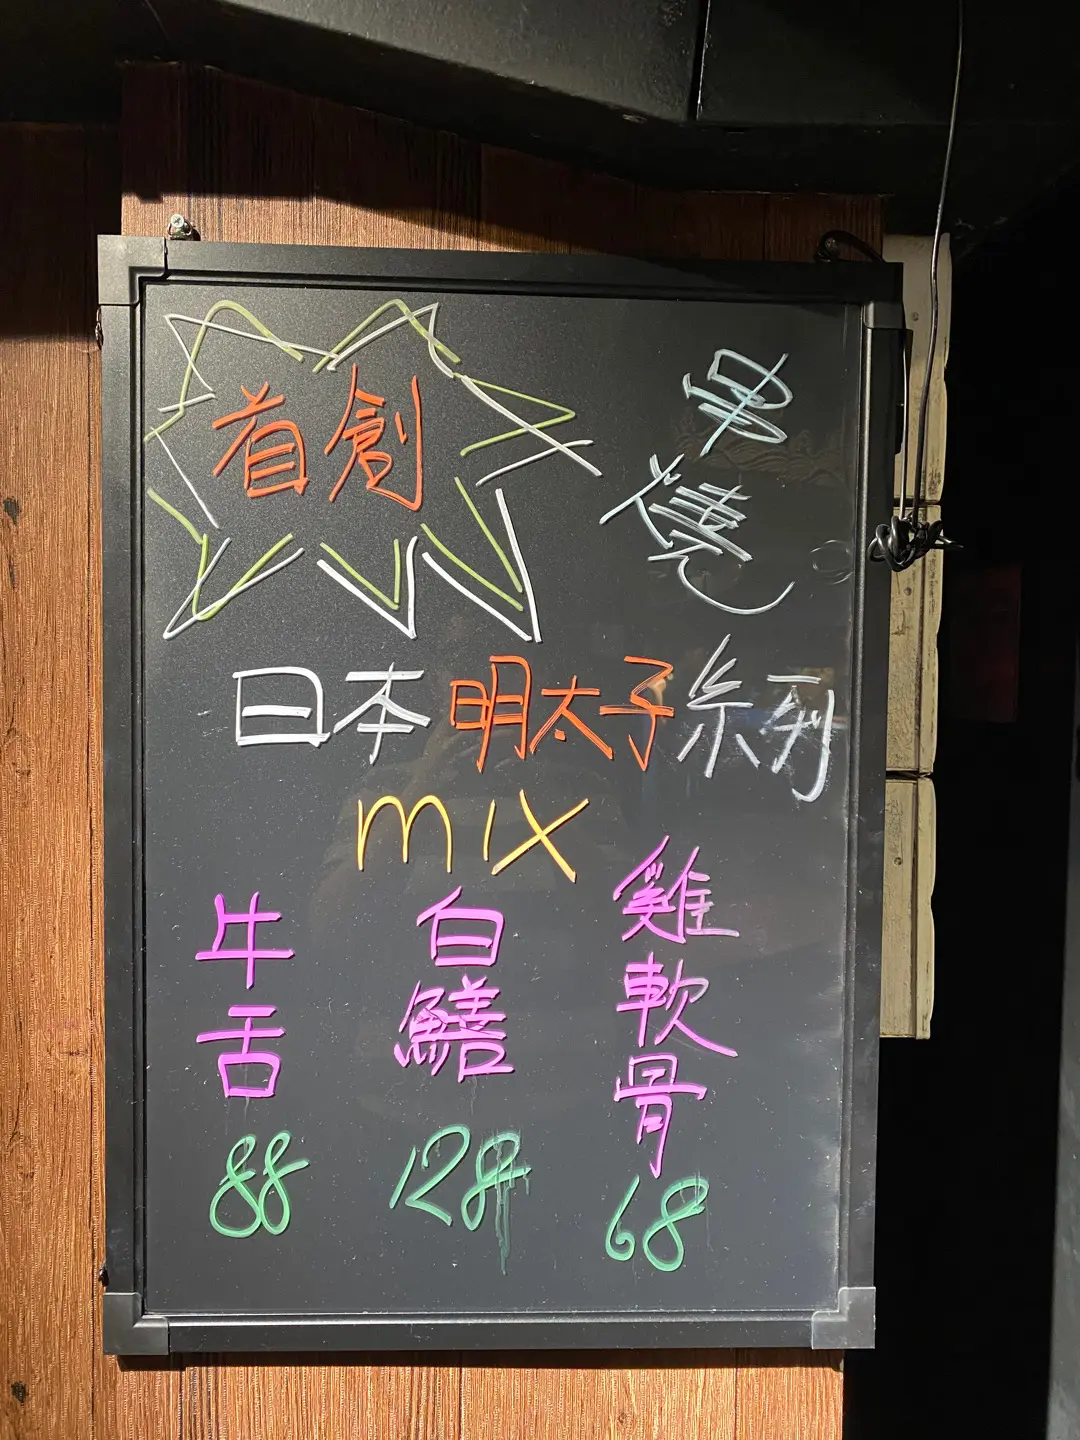 首創
串燒
日本明太子系列
mix
牛舌
88
白鱔
128
雞軟骨
68